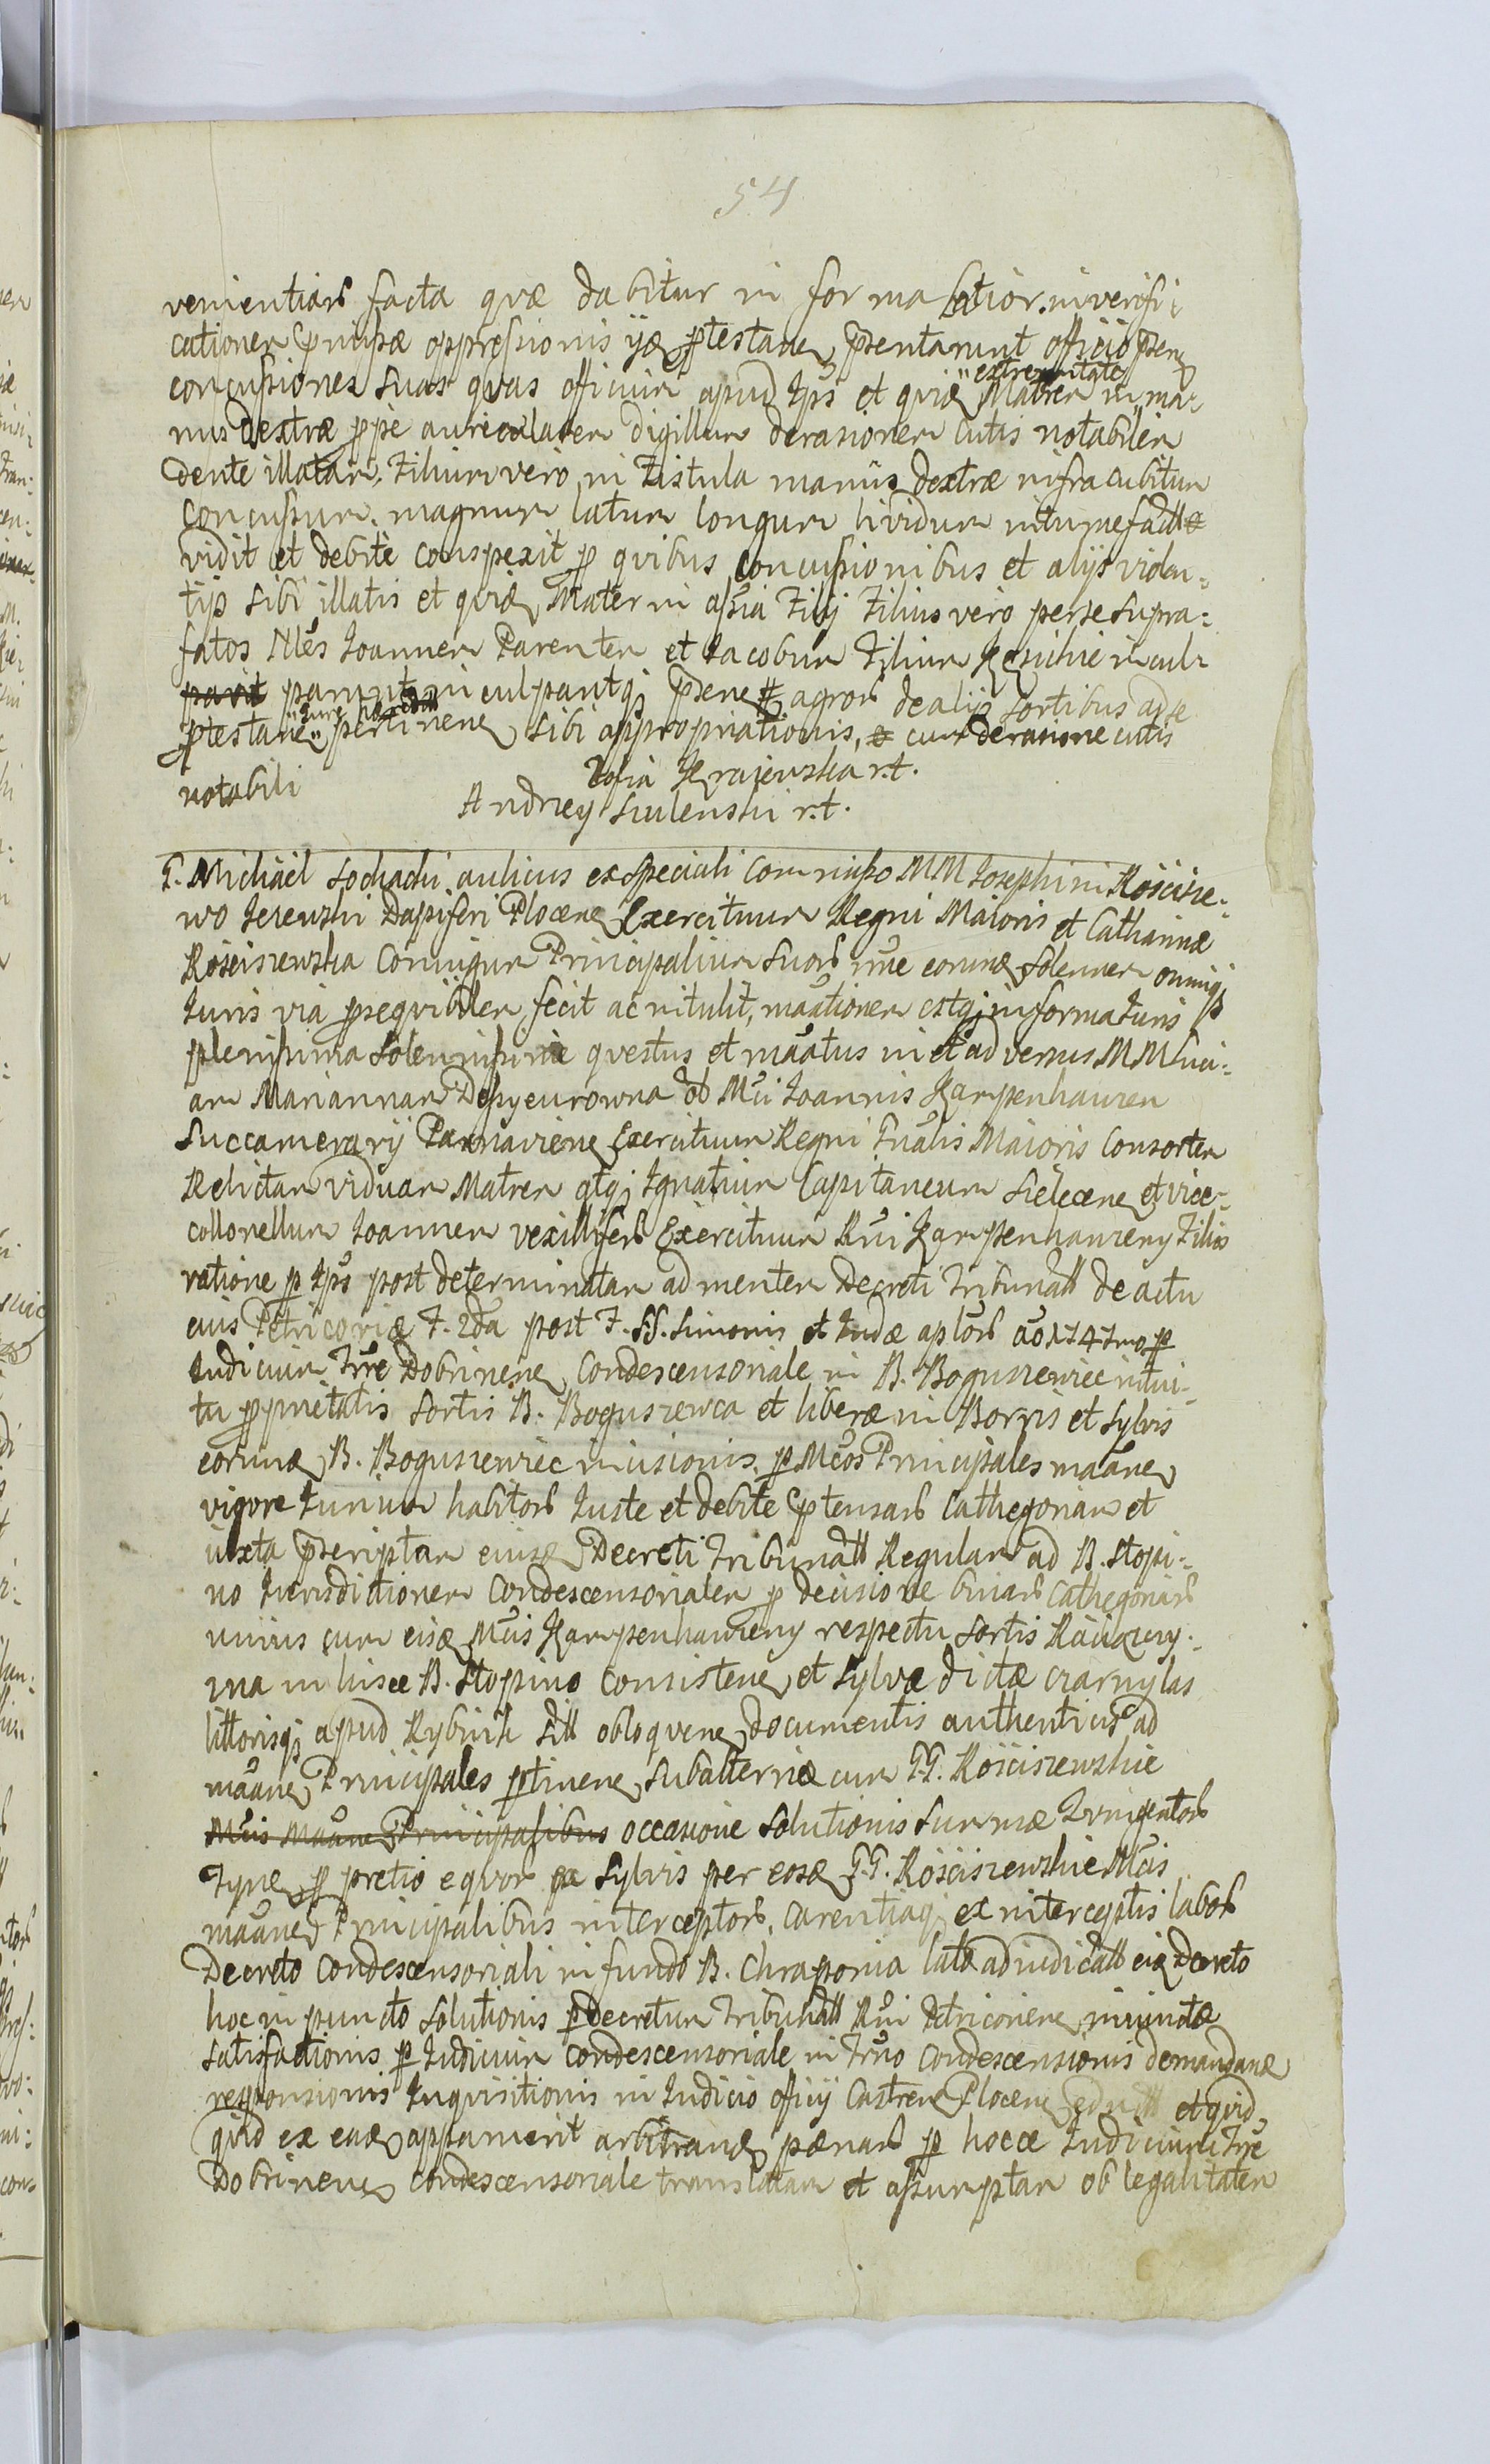 54
venientiarb facta quæ dabitur in forma latior. in verifi
cationem præmissæ oppressionis ijdem ptestane psentarunt officio psene
concussiones suas quas officium apud Ips et quide Matrem "extremitate in ma-
nus dextræ ppe auricularem digillum derasionem cutis notabilem
dente illatam. Filium vero in Fistula manus dextræ infra cubitum
concussum. magnum latum longum lividum intumefactt
vidit et debite conspexit p quibus concussionibus et alijs violen=
tijs sibi illatis et quide Mater in assia Filij Filius vero per se supra=
fatos Nles Joannem Parentem et Jacobum Filium incul-
pavit parunt inculpantq psene agrorb de alijs sortibus ad se
ptestane "Jure pertinene sibi appropriationis, cum derasione cutis
notabili
Zofia Krajewska r.t.
Andrzey Sulenski r.t.
G. Michael Sochacki aulicus ex speciali commisso MM Josephi in Rościsze=
wo Dapiferi Plocene Exercituum Regni Maioris et Catharinæ
Rościszewska Coniugum Principalium suorb nne eorunde solennem omniq
Juris via psequibilem fecit ac intulit, maationem estq in forma Juris p
plenissima solennissime questus et maatus in et adversus MM Luci=
am Mariannam ob Mci Joannis Karpenhauzen
Succamerarij Parnaviene Exercituum Regni Gnalis Maioris Consortem
Relictam viduam Matrem qtq Ignatium Capitaneum et vice=
collonellum Joannem vexilliferb Exercituum Rni Karpenhauzeny Filios
ratione p Ips post determinatam ad mentem Decreti Tribunatt de actu
eius Petricoviæ F. 2da post F. SS. Simonis et Judæ aplorb ao 1747mo p
Judicium Trre Dobrinene Condescensoriale in B. Boguszewiec intui=
tu pprietatis sortis B. Boguszewca et liberæ in Borris et Sylvis
eorunde B. Boguszewiec incisionis. p Mcos Principales maane
vigore Jurium habitorb Juste et debite ptensarb Cathegoriam et
iuxta pscriptam eiusde Decreti Tribunatt Regulam ad B. Stopi=
no Jurisdictionem Condescensorialem p decisione binarb Cathegoriarb
unius cum eisde Mcis Karpenhauzeny respectu sortis
zna in hisce B. Stopino consistene et Sylvæ dictæ czarny las
littorisq apud Rybnik sitt obloquene documentis authenticis ad
maane Principales ptinene subalternæ cum G.G. Rościszewskie
Mcis Maane Principalibus occasione solutionis summæ Tringentorb
Tynf p pretio equor ex sylvis per eosde G.G. Rościszewskie Mcis
maane Principalibus interceptorb, carentiaq ex interceptis laborb
Decreto Condescensoriali in fundo B. Chraponia lato adiudicatt eide Decreto
hoc in puncto solutionis p decretum Tribunatt Rni Petricoviene iniunctæ
satisfactionis p Judicium condescensoriale in Trno condescensionis demandane
responsionis Inquisitionis in Judicio officij Castren Plocene et quid
quid ex eade apparuerit arbitrane pænarb p hocce Judicium Trre
Dobrinene condescensoriale translatam et assumptam ob legalitatem